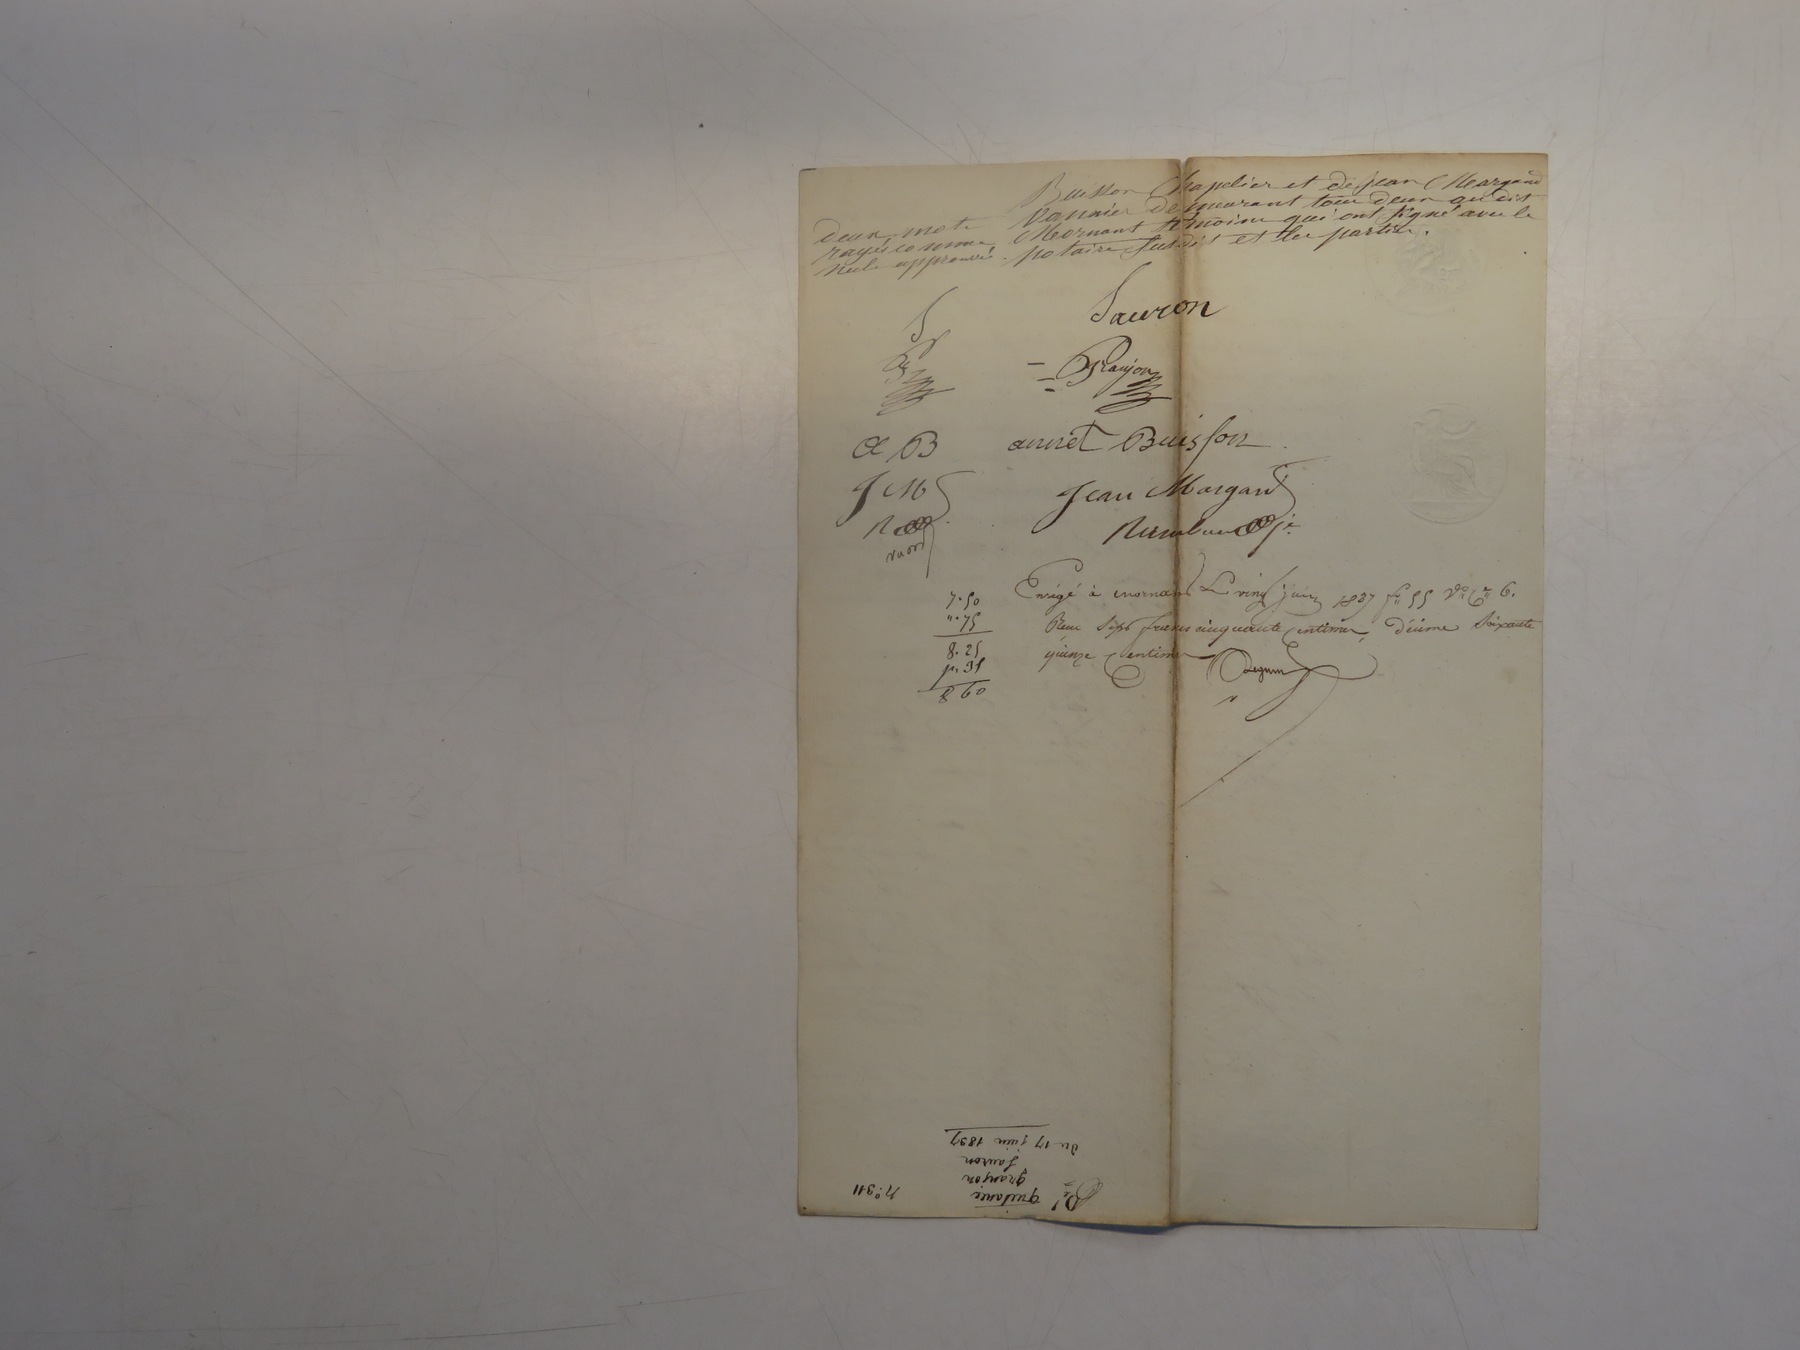 Buisson Chapelier et de Jean Margand
Vannier demeurant tous deux au dit
Mornant témoins qui ont signé avec le
notaire susdit et les parties.
deux mots
rayés comme
nuls approuvés.
S
Sauron
G
Granjon
a B
annet Buisson
J M
Jean Margand
R
7.50
".75
8.25
p. 35
8 60
Enrégé à mornant Le vingt juin 1837 f° 55 V° C° 6.
Reçu Sept francs cinquante Centimes, décime Soixante
quinze Centimes
N° 311
Bt
quitance
granjon
Sauron
du 17 juin 1837